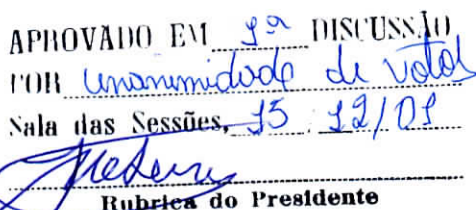 APROVADO EM 1ª DISCUSSÃO
POR unanimidade de votos
Sala das Sessões, 15 12/01
Rubrica do Presidente